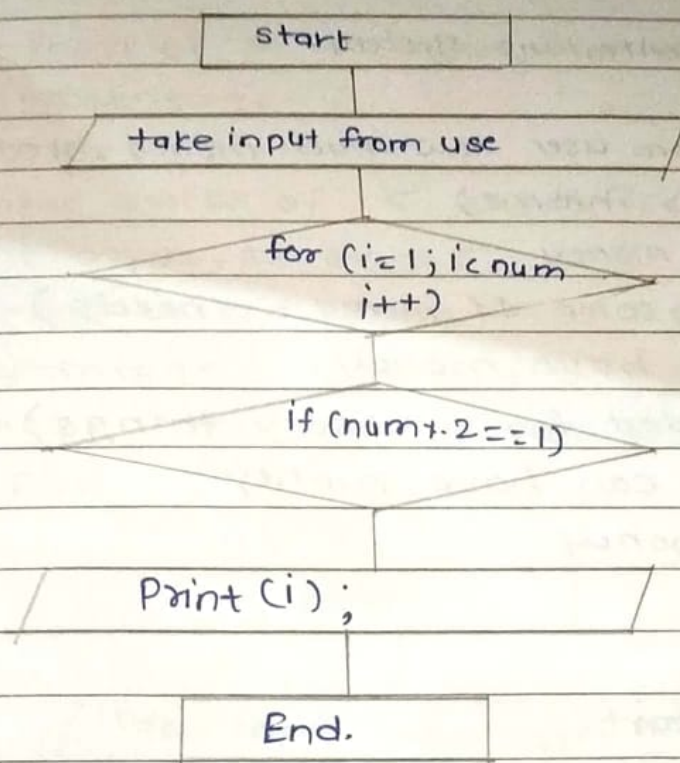 start
take input from use
for (i=1; i<num
i++)
if (num%2==1)
Print (i);
End.